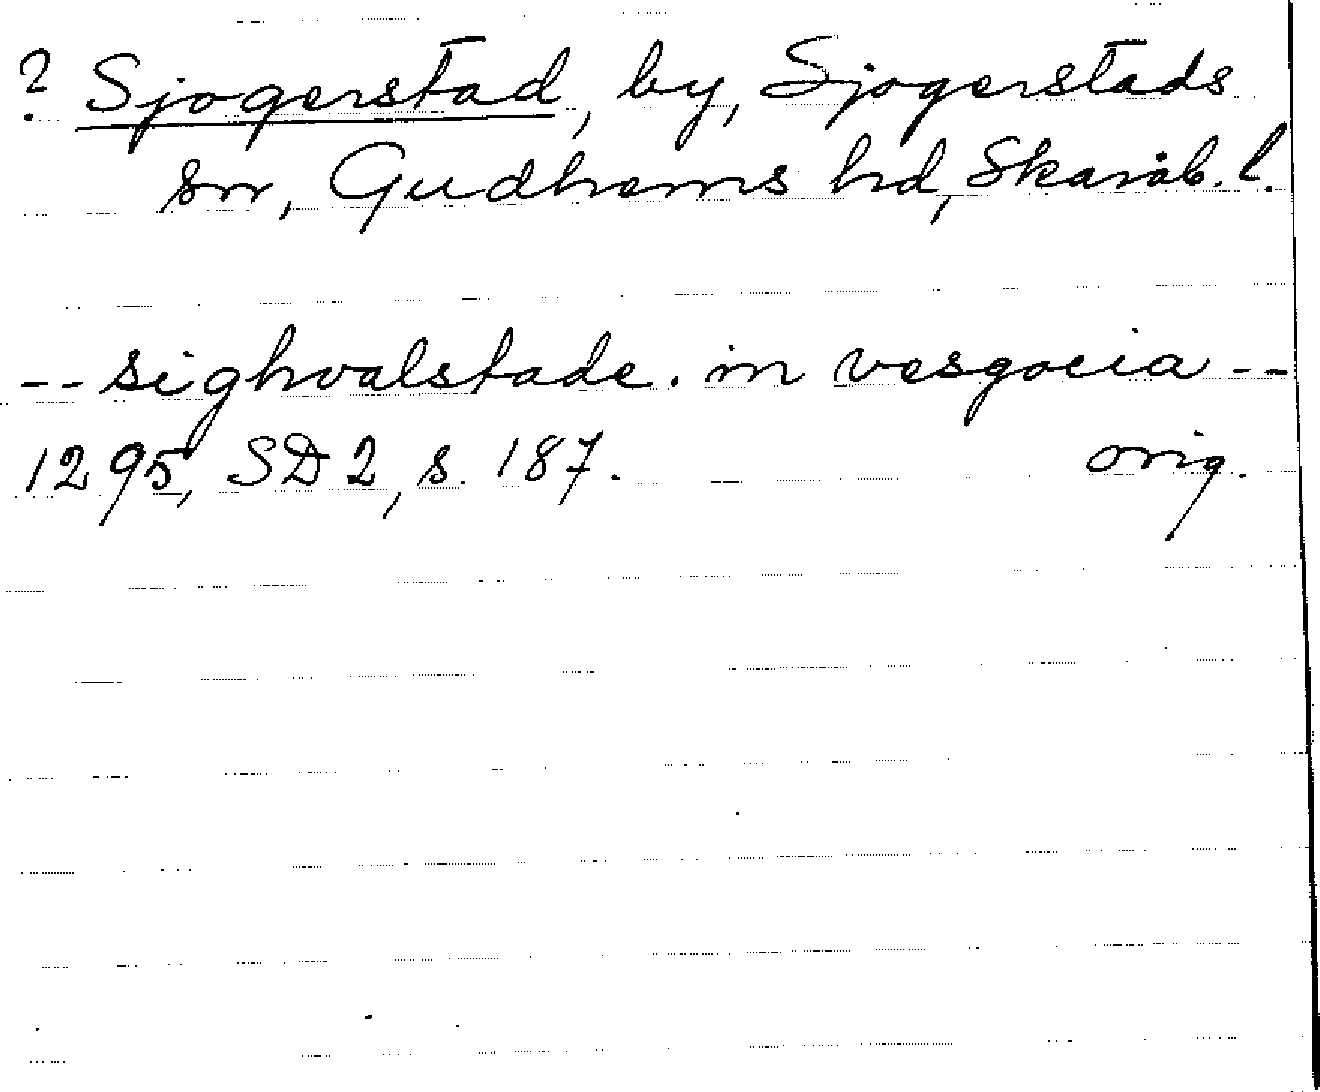 ? Sjogerstad, by, Sjogerstads
sn, Gudhems hd, Skarab. l.
-- sighvalstade. in vesgocia --
1295, SD 2, s. 187. orig.